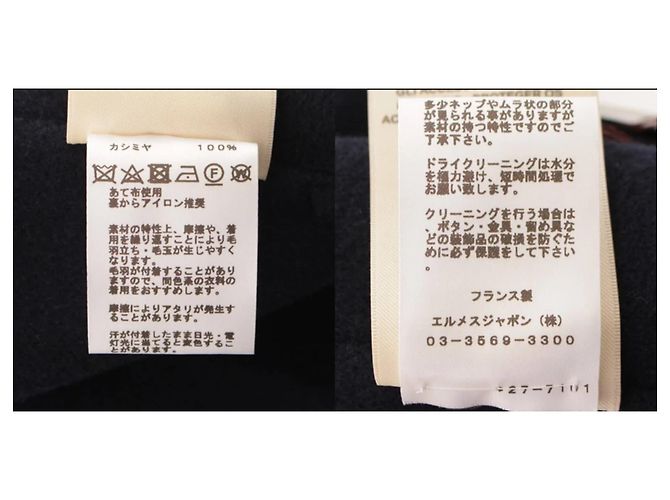 カシミヤ 100%
F W
あて布使用
裏からアイロン推奨
素材の特性上、摩擦や、着
用を繰り返すことにより毛
羽立ち・毛玉が生じやすく
なります。
毛羽が付着することがあり
ますので、同色系の衣料の
着用をおすすめします。
摩擦によりアタリが発生す
ることがあります。
汗が付着したまま日光・電
灯光に当てると変色するこ
とがあります。
PROTEGER OS
AC
多少ネップやムラ状の部分
が見られる事がありますが
素材の持つ特性ですのでご
了承下さい。
ドライクリーニングは水分
を極力避け、短時間処理で
お願い致します。
クリーニングを行う場合は
、ボタン・金具・留め具な
どの装飾品の破損を防ぐた
めに必ず保護をして下さい
。
フランス製
エルメスジャポン（株）
03-3569-3300
27-7101